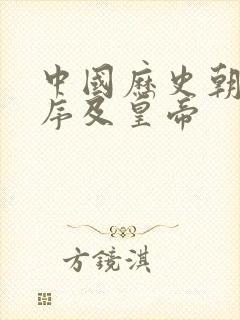 中國歷史朝
序及皇帝
方鏡淇